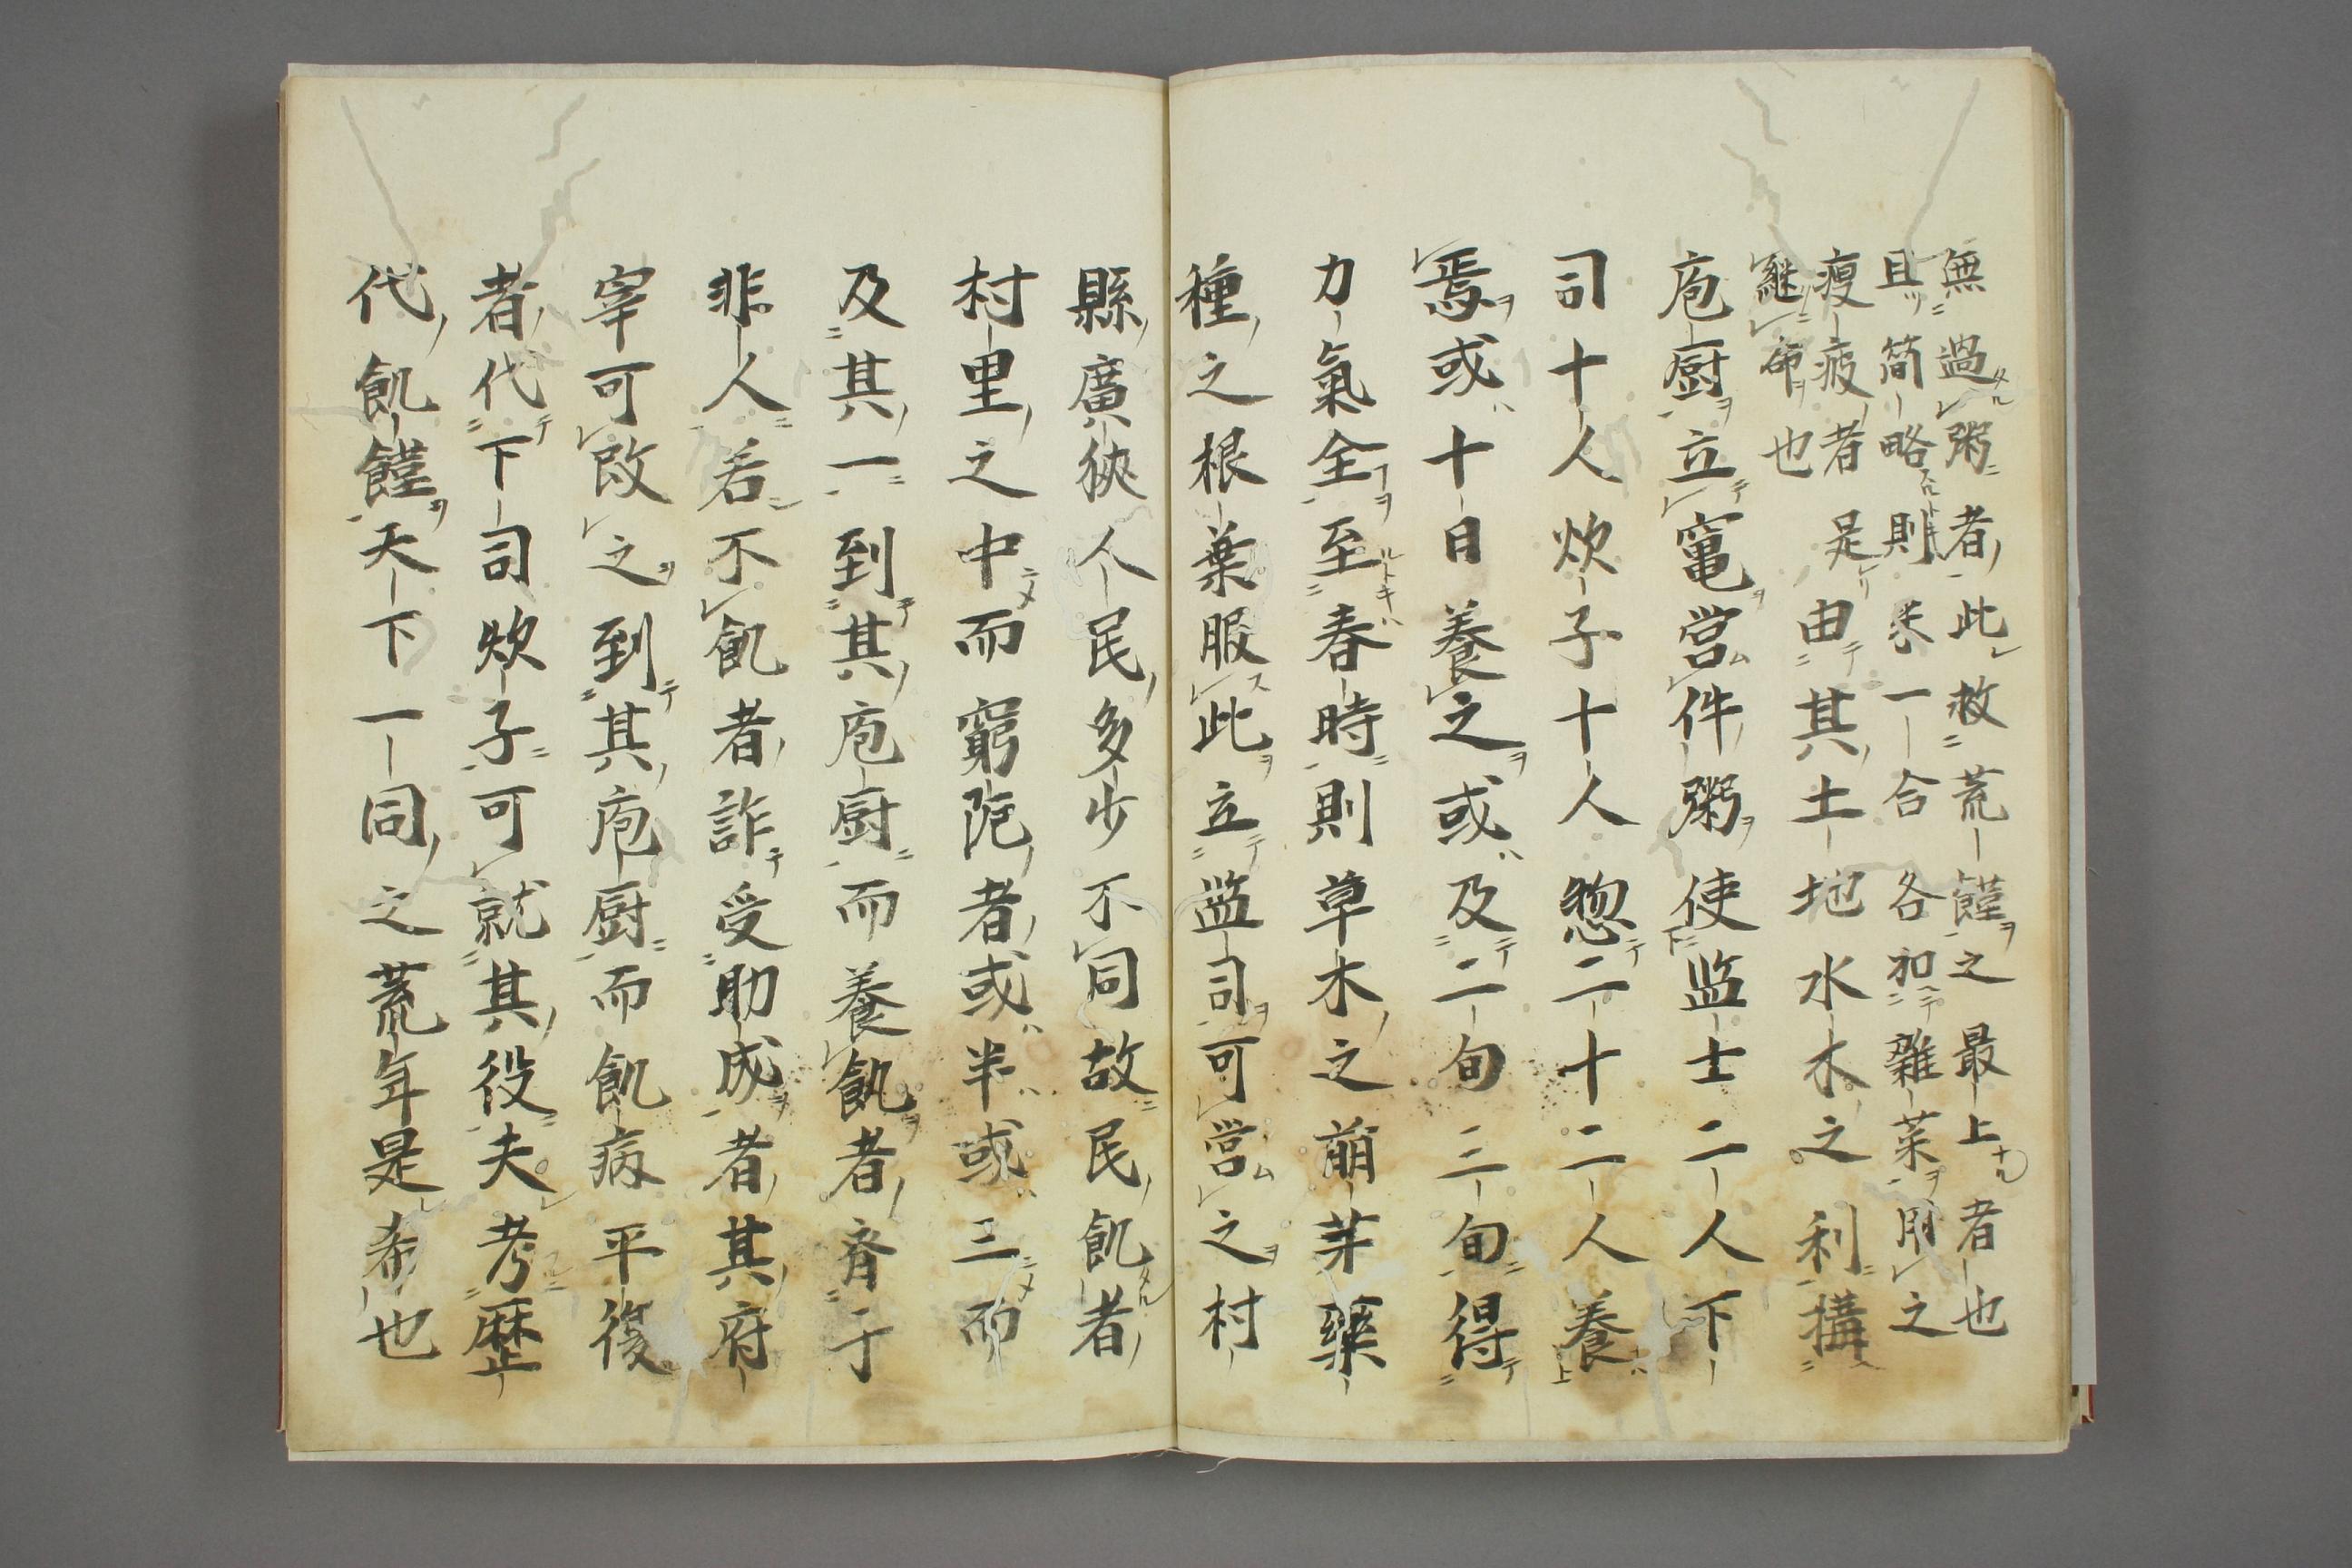 無過粥者此救荒饉之最上者也
且簡略則米一合各和雜菜用之
瘦疲者是由其土地水木之利搆
継命也
庖厨立竃営件粥使监士二人下
司十人炊子十人惣二十二人養
焉或十日養之或及二旬三旬得
力氣全至春時則草木之萌芽藥
種之根葉服此立监司可営之村
縣廣狹人民多少不同故民飢者
村里之中而窮阨者或半或三而
及其一到其庖厨而養飢者育于
非人若不飢者詐受助成者其府
宰可改之到其庖厨而飢病平復
者代下司炊子可就其役夫考歴
代飢饉天下一同之荒年是希也